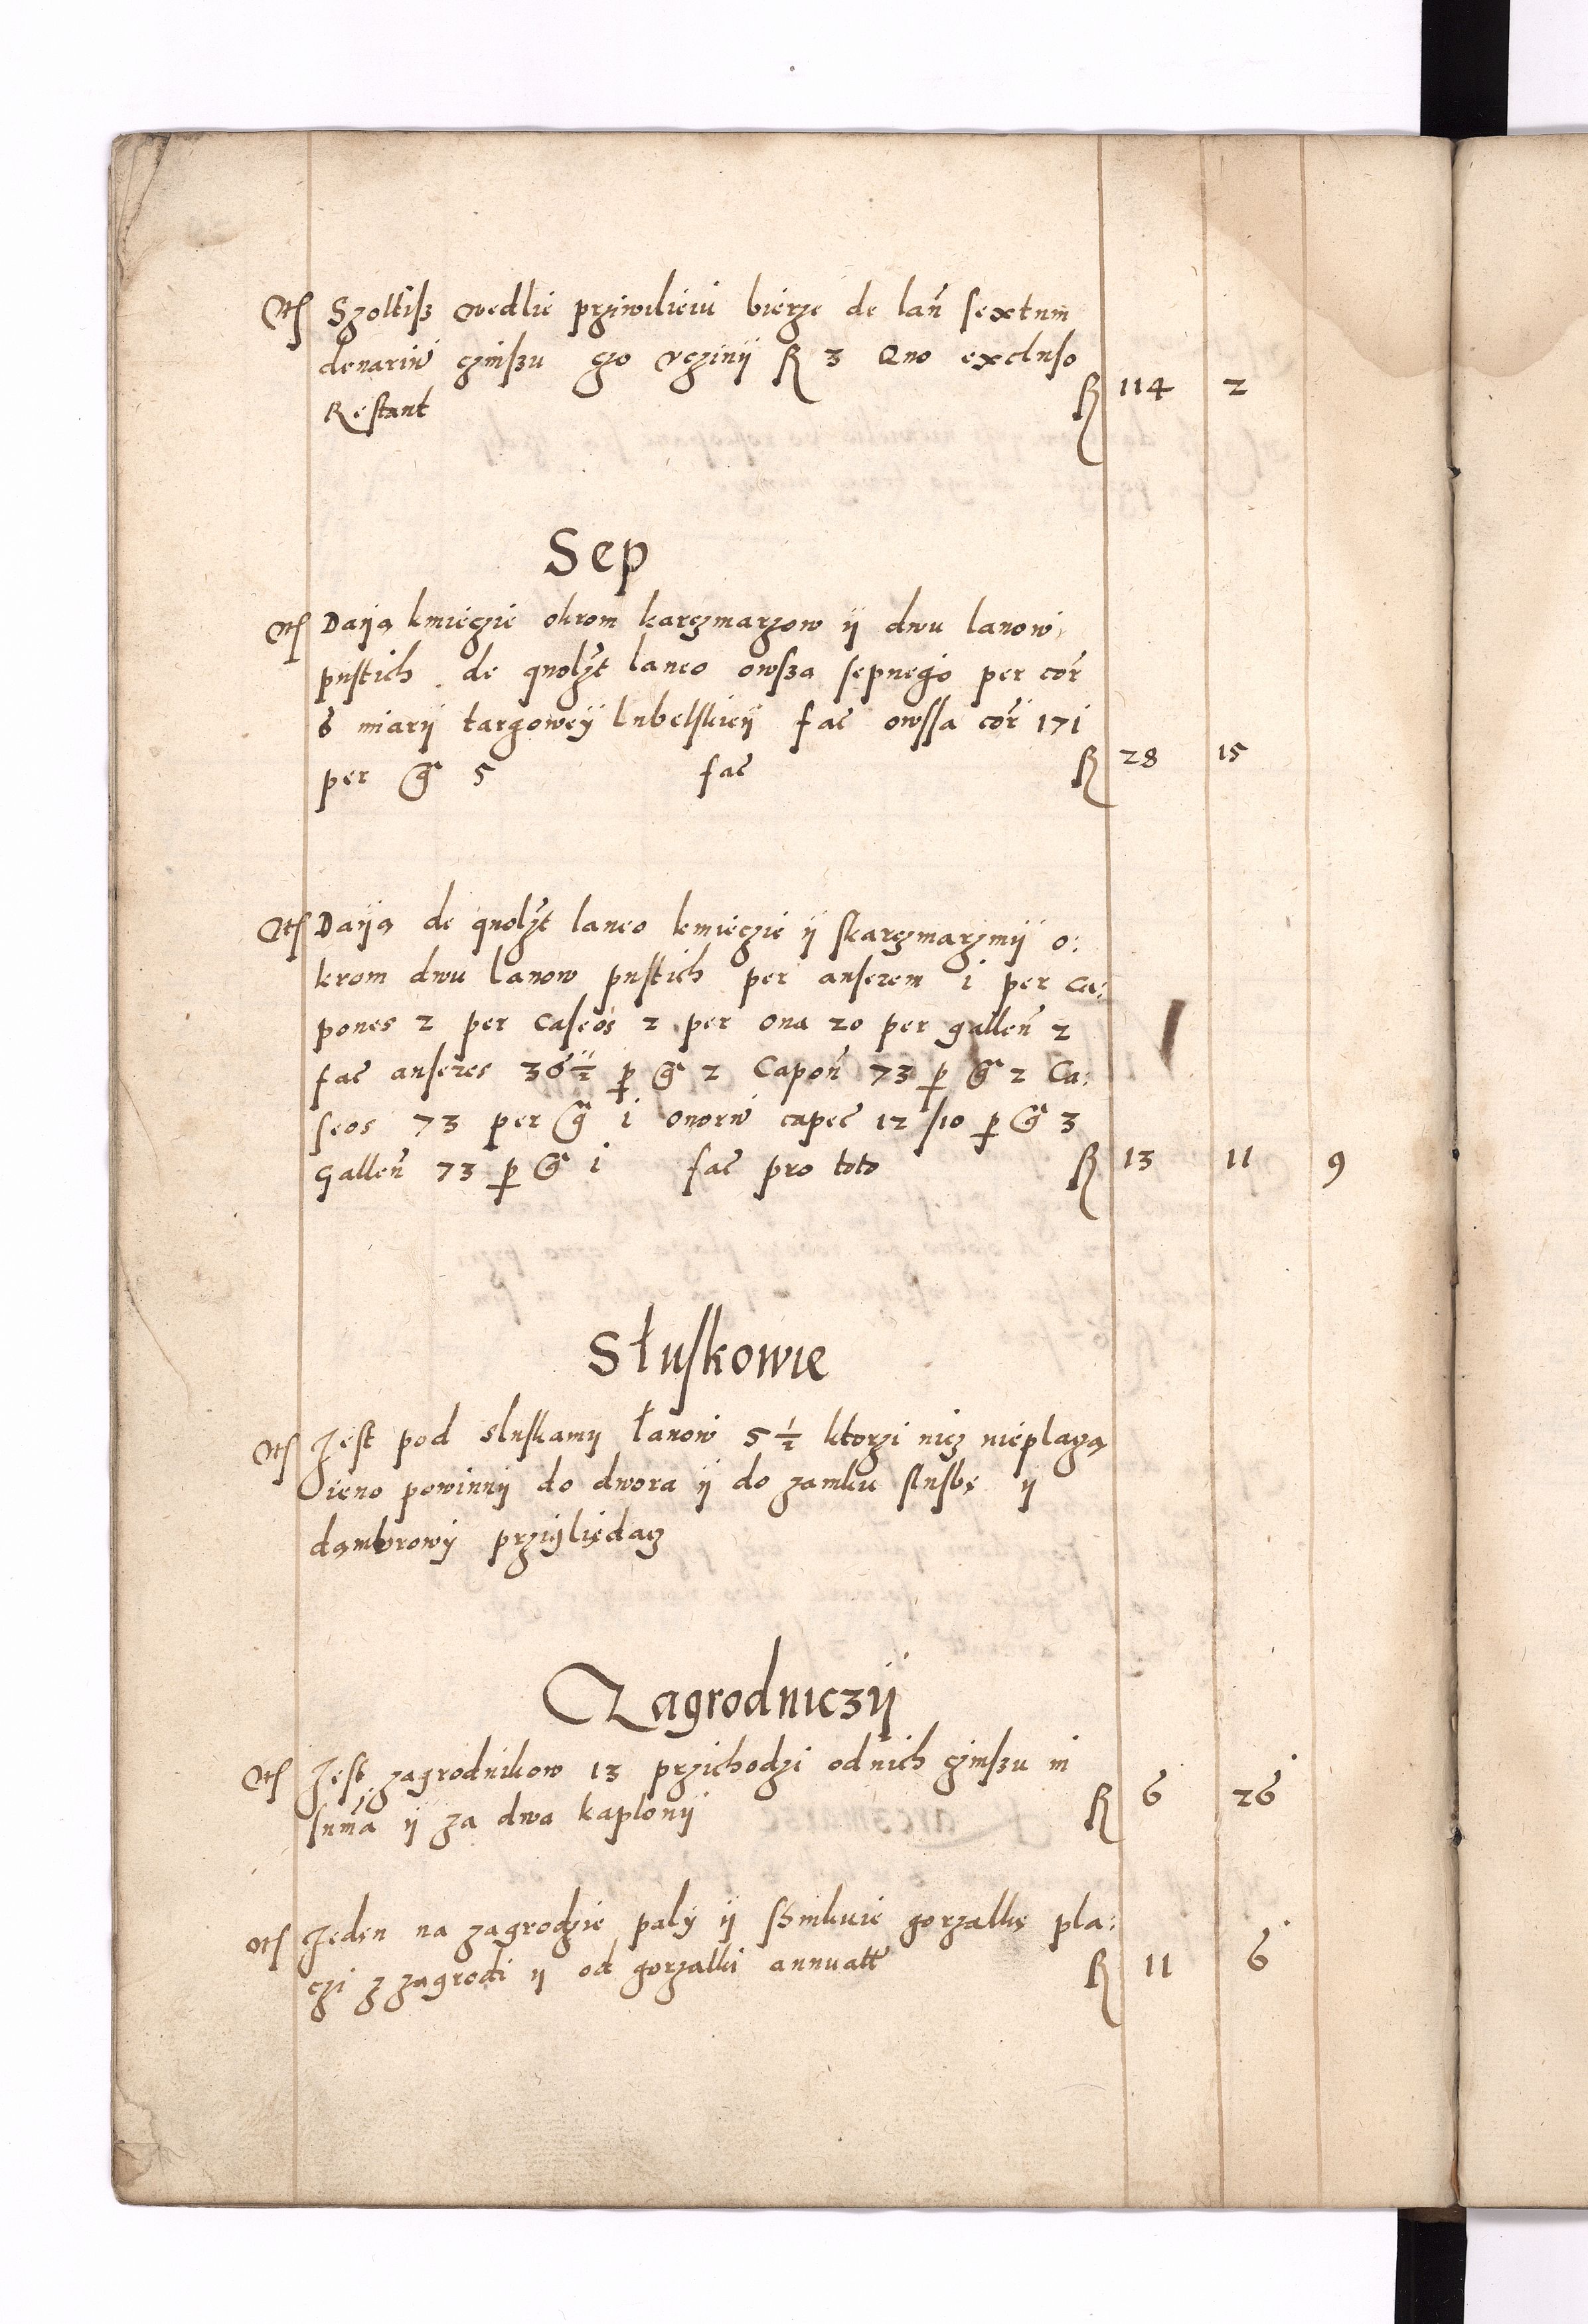 Itē Szołtiß wedlie prziwilieiu bierze de lań sextum
denariū czinßzu czo vczinÿ R 3 Quo excluso
Restant R 114 2
Sep
Itē Daÿą kmieczie okrom karczmarzow ÿ dwu lanow
pustich de quolzt laneo owsza sepnego per cor
6 miarÿ targoweÿ lubelskieÿ fac owssa cor 171
per gr 5 fac R 28 15
Itē Daÿą de quolzt laneo kmieczie ÿ skarczmarzmÿ o:
krom dwu lanow pustich per anserem i per ca:
pones 2 per caseos 2 per oua 20 per gallen 2
fac anseres 36½ p gr 2 Capoń 73 p gr 2 Ca:
seos 73 per gr i ouorū capec 12/10 p gr 3
gallen 73 p gr i fac pro toto R 13 11 9
Słuskowie
Itē Jest pod sluskamÿ łanow 5½ ktorzi nicz nieplaczą
ieno powinnÿ do dwora ÿ do zamku slusbę ÿ
dąmbrowÿ prziglieдаcz
Zagrodniczÿ
Itē Jest zagrodnikow 13 przichodzi odnich czinßzu in
suma ÿ za dwa kaplonÿ R 6 26
Itē Jeden na zagrodzie palÿ ÿ sßinkuie gorzalkę pla:
czi z zagrodi ÿ od gorzalki annuatt R 11 6